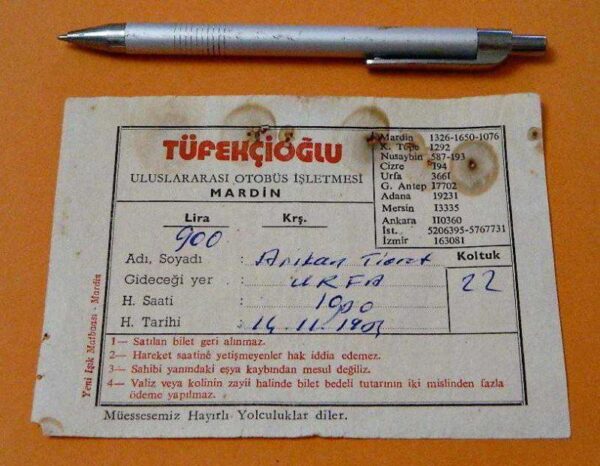 TÜFEKÇİOĞLU
ULUSLARARASI OTOBÜS İŞLETMESİ
MARDİN
Mardin 1326-1650-1076
K. Tepe 1292
Nusaybin 587-193
Cizre 194
Urfa 3661
G. Antep 17702
Adana 19231
Mersin 13335
Ankara 110360
İst. 5206395-5767731
İzmir 163081
Lira Krş.
900
Adı, Soyadı : Arıkan Ticret
Gideceği yer : URFA
H. Saati :
H. Tarihi : 14.11.
Koltuk
22
1— Satılan bilet geri alınmaz.
2— Hareket saatine yetişmeyenler hak iddia edemez.
3— Sahibi yanındaki eşya kaybından mesul değiliz.
4— Valiz veya kolinin zayii halinde bilet bedeli tutarının iki mislinden fazla
ödeme yapılmaz.
Müessesemiz Hayırlı Yolculuklar diler.
Yeni Işık Matbaası - Mardin